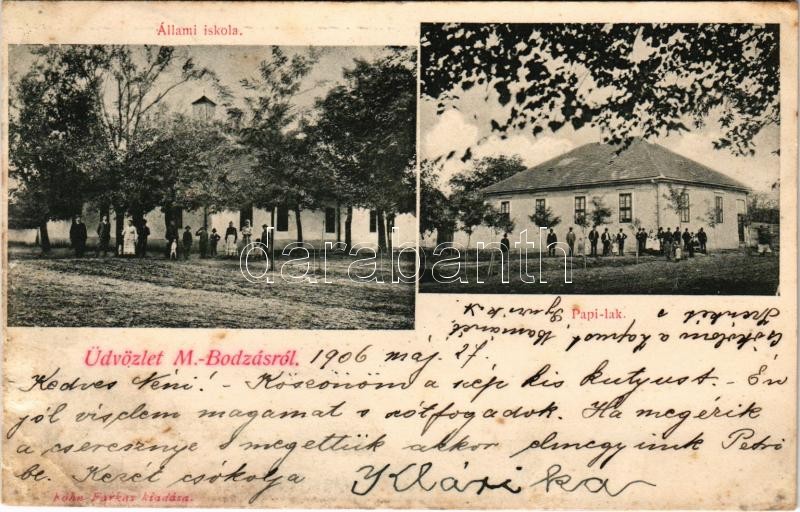 Állami iskola.
Papi-lak.
darabanth
Üdvözlet M.-Bodzásról. 1906 máj. 27.
Kedves Néni! - Köszönöm a szép kis kutyust. - Én
jól viselem magamat s szótfogadok. Ha megérik
a cseresznye s megettük akkor elmegyünk Petri
be. Kezét csókolja Klárika
Csókolom a
Kohn Farkas kiadása.